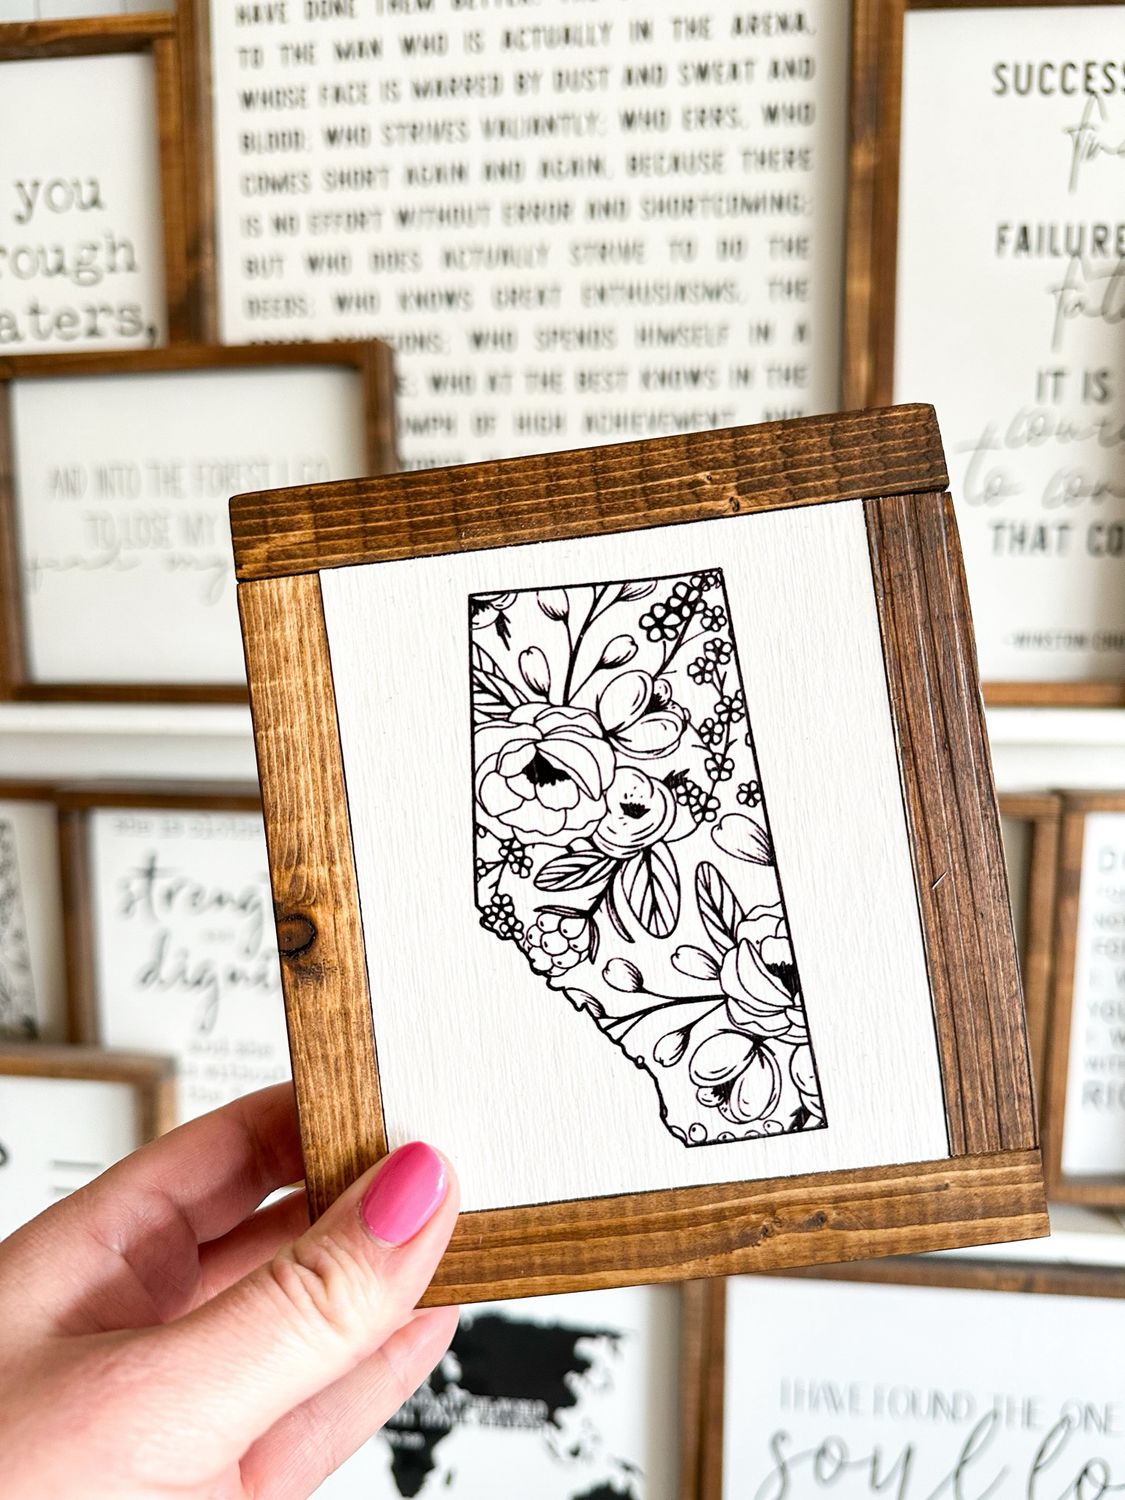 HAVE DONE THEM BETTER. THE
TO THE MAN WHO IS ACTUALLY IN THE ARENA,
WHOSE FACE IS MARRED BY DUST AND SWEAT AND
BLOOD; WHO STRIVES VALIANTLY; WHO ERRS, WHO
COMES SHORT AGAIN AND AGAIN, BECAUSE THERE
IS NO EFFORT WITHOUT ERROR AND SHORTCOMING;
BUT WHO DOES ACTUALLY STRIVE TO DO THE
DEEDS; WHO KNOWS GREAT ENTHUSIASMS, THE
IONS; WHO SPENDS HIMSELF IN A
E; WHO AT THE BEST KNOWS IN THE
UMPH OF HIGH ACHIEVEMENT, AND
you
rough
aters,
SUCCESS
FAILURE
IT IS
coura
to con
THAT CO
-WINSTON CHU
AND INTO THE FOREST I GO
TO LOSE MY
streng
digni
and she
without
the
I HAVE FOUND THE ONE
soul lo